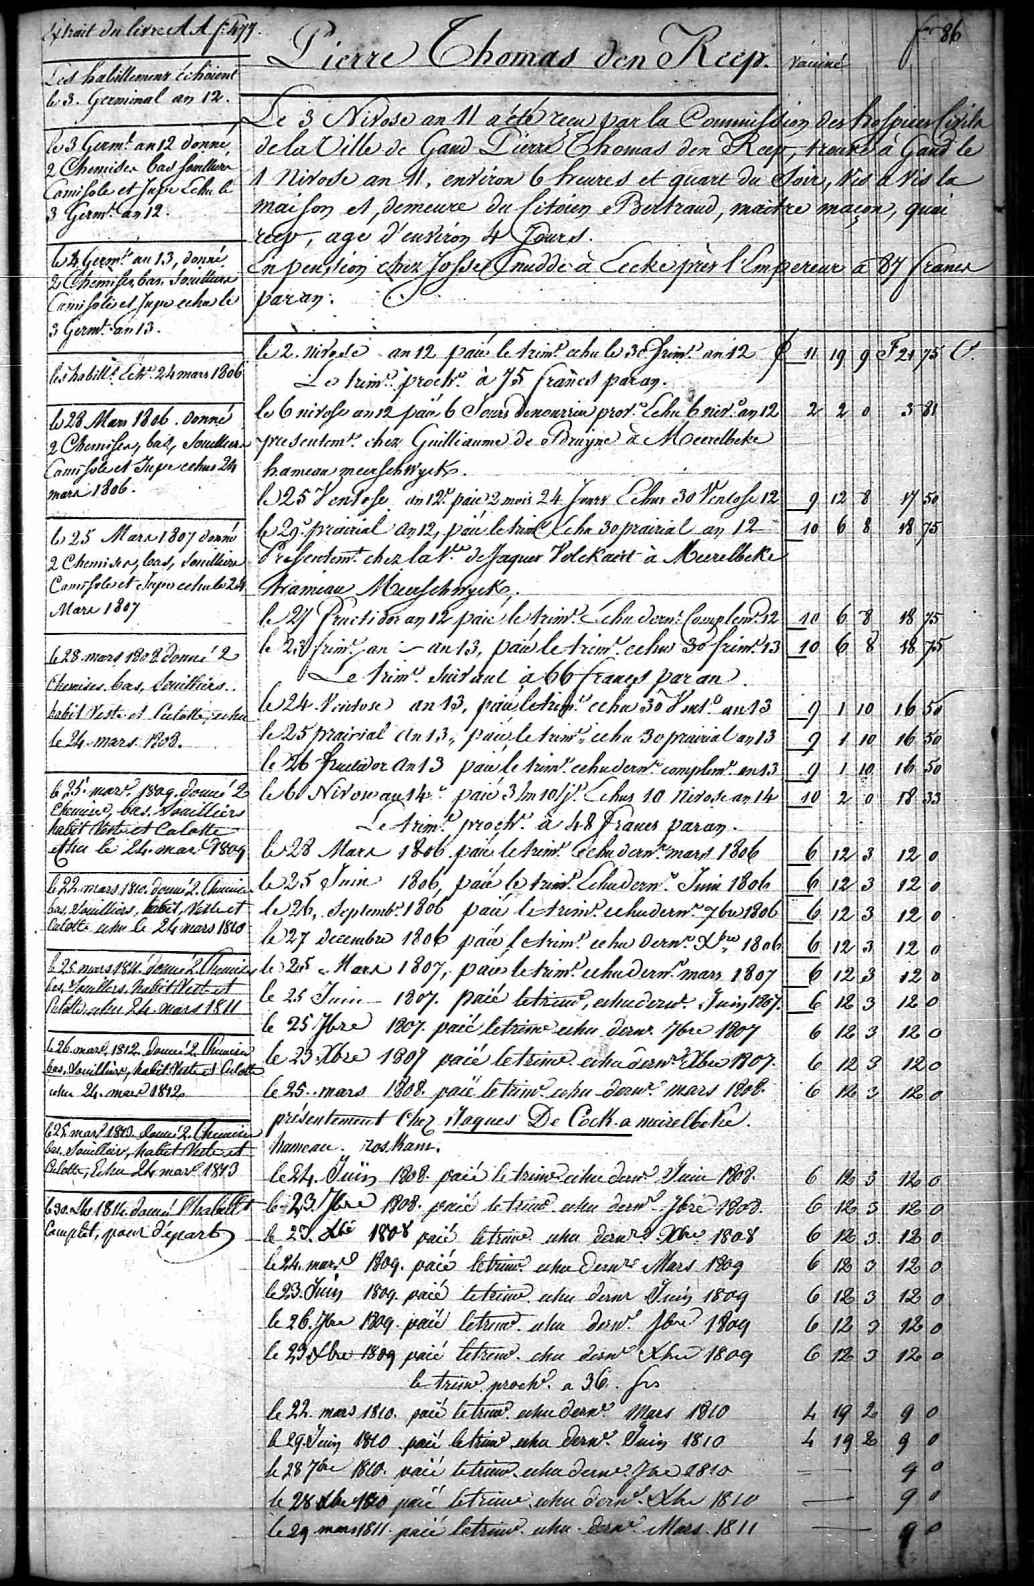 Extrait du livre AA fo 477.
fo 86
Pierre Thomas den Reep.
vacciné
Les habillemens échoient
le 3. Germinal an 12.
le 3 Germl an 12 donné,
2 Chemises bas souilliers
Camisole et Jupe echu le
3 Germl an 12.
le 4 Germl an 13, donné
2 Chemises, bas, Souilliers
Camisole et Jupe echu le
3 Germl an 13.
les habillts Echs 24 mars 1806
le 28 Mars 1806. donné
2 Chemises, bas, Souilliers
Camisole et Jupe echus 24
mars 1806.
le 25 Mars 1807 donné
2 Chemises, bas, Souilliers
Camisole et Jupe echu le 24
Mars 1807
le 28 mars 1808 donné 2
Chemises. bas, Souilliers.
habit Veste et Culotte, echu
le 24 mars 1808.
le 25. mars 1809. donné 2
Chemises, bas, Souilliers
habit Veste et Culotte
echu le 24 mars 1809
le 22. mars 1810. donné 2. Chemises
bas, Souilliers, habit, Veste et
Culotte echu le 24 mars 1810
le 25 mars 1811. donné 2. Chemises
bas, Souilliers, habit Veste et
Culotte, echu 24. mars 1811
le 26. mars 1812. donné 2. Chemises
bas, Souilliers, habit Veste et Culotte
echu 24. mars 1812
le 25 mars 1813 donné 2. Chemises
bas, Souilliers, habit Veste et
Culotte, Echu 24 mars 1813
1814 donné l'habillt
Complet, pour départ
Le 3 Nivose an 11 a été recu par la Commission des hospices Civils
de la Ville de Gand Pierre Thomas den Reep, trouvé à Gand le
1 Nivose an 11, environ 6 heures et quart du Soir, vis à vis la
maison et demeure du Citoien Bertrand, maître maçon, quai
reep, age d'environ 4 Jours.
En pension chez Josse Cnudde à Eecke près l'Empereur a 87 francs
par an.
le 2. nivose an 12 paié le trimr echu le 30 frimr an 12 11 19 9 F 21 75 Ct
Le trimr prochn à 75 francs par an.
le 6 nivose an 12 paié 6 Jours de nourrice provr Echu 6 nivr an 12 2 2 0 3 81
presentemt chez Guilliaume de Bruyne à Meerelbeke
hameau meerschwyck.
le 25 Ventose an 12 paié 2 mois 24 Jours Echus 30 Ventose 12 9 12 8 17 50
le 29. prairial an 12, paié le trimr Echu 30 prairial an 12 10 6 8 18 75
Présentemt chez la Ve de Jaques Volckaert à Meerelbeke
hameau Meerschwyck,
le 27 fructidor an 12 paié le trimr Echu dernr Complemr 12 10 6 8 18 75
le 23 frimr an - an 13, paié le trimr echus 30 frimr 13 10 6 8 18 75
Le trimr suivant à 66 francs par an.
le 24 Ventose an 13, paié le trimr echu 30 Vents an 13 9 1 10 16 50
le 25 prairial an 13, paié le trimr echu 30 prairial an 13 9 1 10 16 50
le 26 fructidor an 13 paié le trimr echu dernr complemr an 13 9 1 10 16 50
le 6 Nivose an 14 paié 3 m 10 Js Echus 10 nivose an 14 10 2 0 18 33
Le trimr prochn à 48 francs par an.
le 28 Mars 1806 paié le trimr Echu dernr mars 1806 6 12 3 12 0
le 25 Juin 1806, paié le trimr Echu dernr Juin 1806 6 12 3 12 0
le 26, Septembr 1806 paié le trimr echu dernr 7bre 1806 6 12 3 12 0
le 27 decembre 1806 paié le trimr echu dernr Xbre 1806 6 12 3 12 0
le 25 Mars 1807, paié le trimr echu dernr mars 1807 6 12 3 12 0
le 25 Juin 1807. paié le trimr, echu dernr Juin 1807. 6 12 3 12 0
le 25 7bre 1807. paié le trimr echu dernr 7bre 1807 6 12 3 12 0
le 23 Xbre 1807 paié le trimr echu dernr Xbre 1807. 6 12 3 12 0
le 25. mars 1808. paié le trimr echu dernr mars 1808. 6 12 3 12 0
présentement chez Jaques De Cock a meirelbeke.
hameau. roskam.
le 24. Juin 1808. paié le trimr echu dernr Juin 1808. 6 12 3 12 0
le 23 7bre 1808. paié le trimr echu dernr 7bre 1808. 6 12 3 12 0
le 23. Xbre 1808 paié le trimr echu dernr Xbre 1808 6 12 3 12 0
le 24. mars 1809. paié le trimr echu dernr Mars 1809 6 12 3 12 0
le 23. Juin 1809. paié le trimr echu dernr Juin 1809 6 12 3 12 0
le 26. 7bre 1809. paié le trimr echu dernr 7bre 1809 6 12 3 12 0
le 29 Xbre 1809 paié le trimr echu dernr Xbre 1809 6 12 3 12 0
le trimr prochn a 36. frs
le 22. mars 1810. paié le trimr echu dernr Mars 1810 4 19 2 9 0
le 29. Juin 1810 paié le trimr echu dernr Juin 1810 4 19 2 9 0
le 28 7bre 1810. paié le trimr echu dernr 7bre 1810 — 9 0
le 28 Xbre 1810 paié le trimr echu dernr Xbre 1810 — 9 0
le 29 mars 1811. paié le trimr echu dernr Mars. 1811 — 9 0